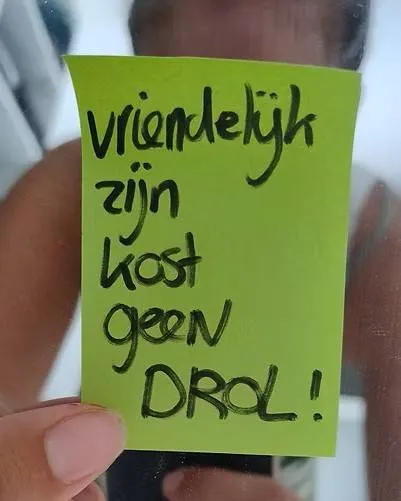 vriendelijk
zijn
kost
geen
DROL!